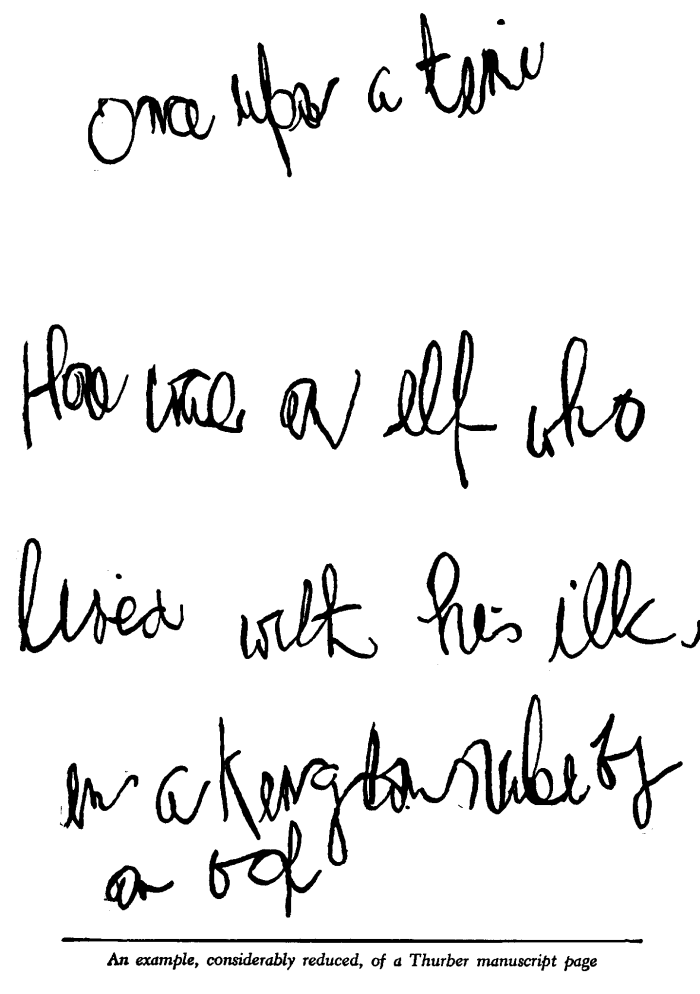 Once upon a time
there was an elf who
lived with his ilk,
in a kingdom rules by
an oof
An example, considerably reduced, of a Thurber manuscript page